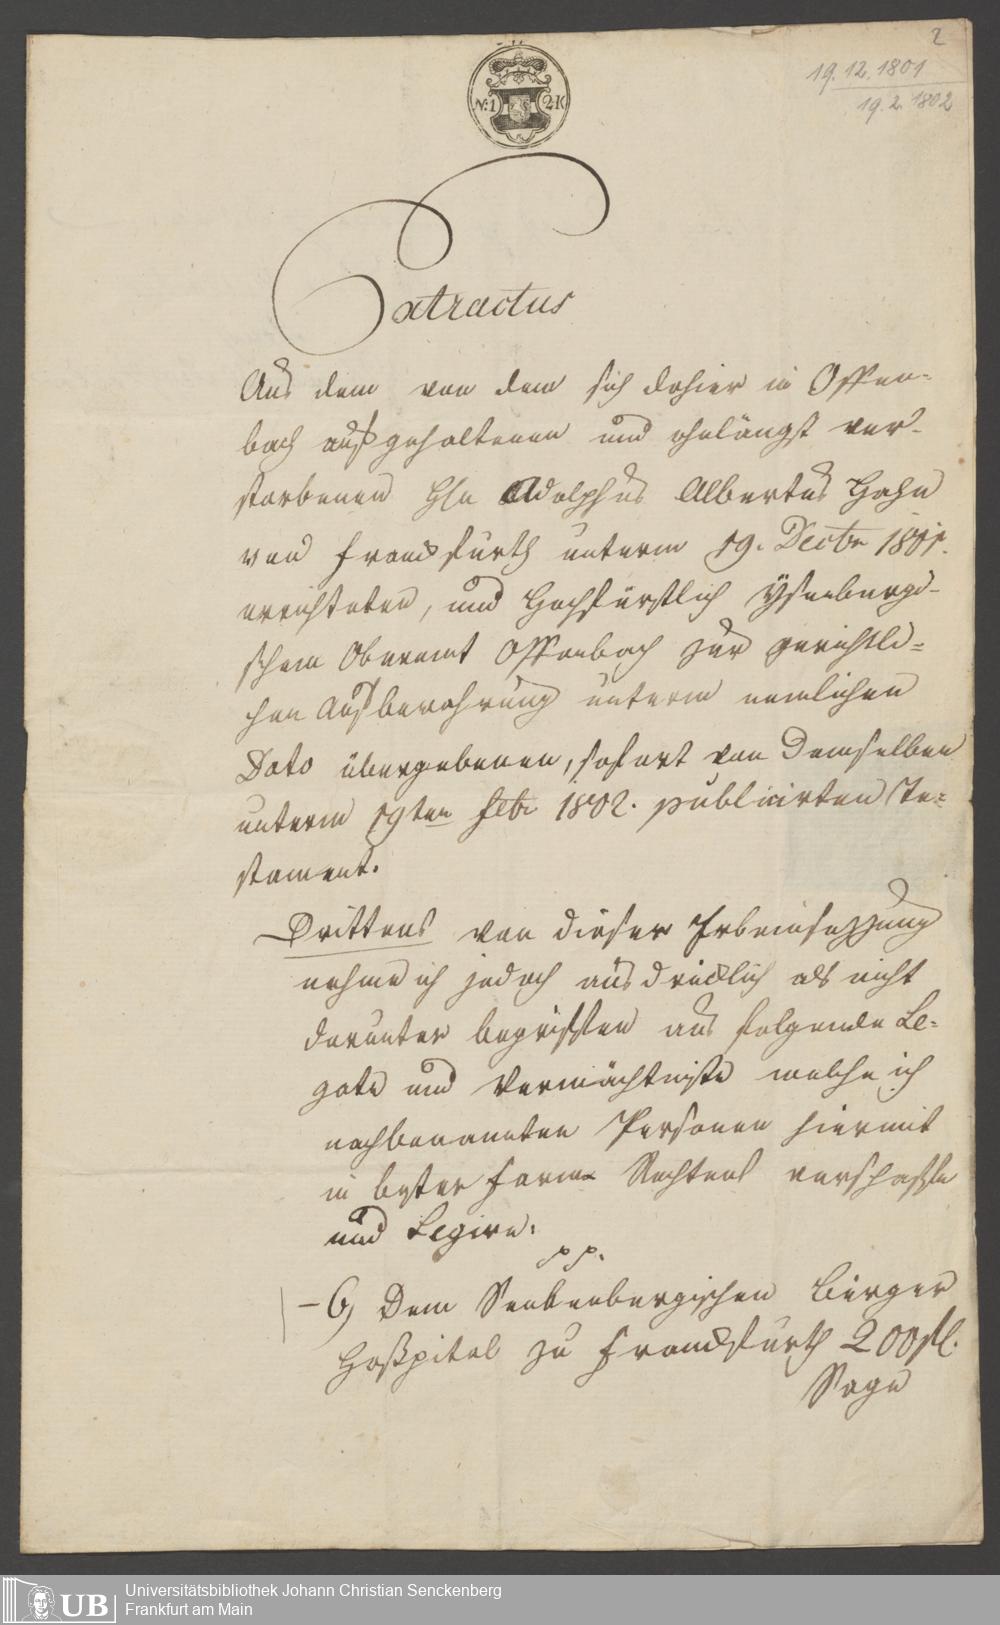 2
19.12.1801
19.2.1802
N:1 2 K
Extractus
Aus dem von dem sich dahier in Offen-
bach aufgehaltenen und ohnlängst ver-
storbenen Hln Adolphus Albertus Hahn
von Franckfurth unterm 19. Decbr 1801.
errichteten, und Hochfürstlich Ysenburgi-
schem Oberamt Offenbach zur gerichtli-
chen Aufbewahrung unterm nemlichen
Dato übergebenen, sofort von Demselben
unterm 19ten Febr 1802. publicirten Te-
stament.
Drittens von dieser Erbeinsezzung
nehme ich jedoch ausdrücklich als nicht
darunter begriffen aus folgende Le-
gate und Vermächtniße welche ich
nachbenannten Personen hiermit
in bester Form Rechtens verschaffe
und Legire.
pp.
- 6) Dem Senkenbergischen Bürger
Hoßpital zu Franckfurth 200 fl.
Sage
UB
Universitätsbibliothek Johann Christian Senckenberg
Frankfurt am Main